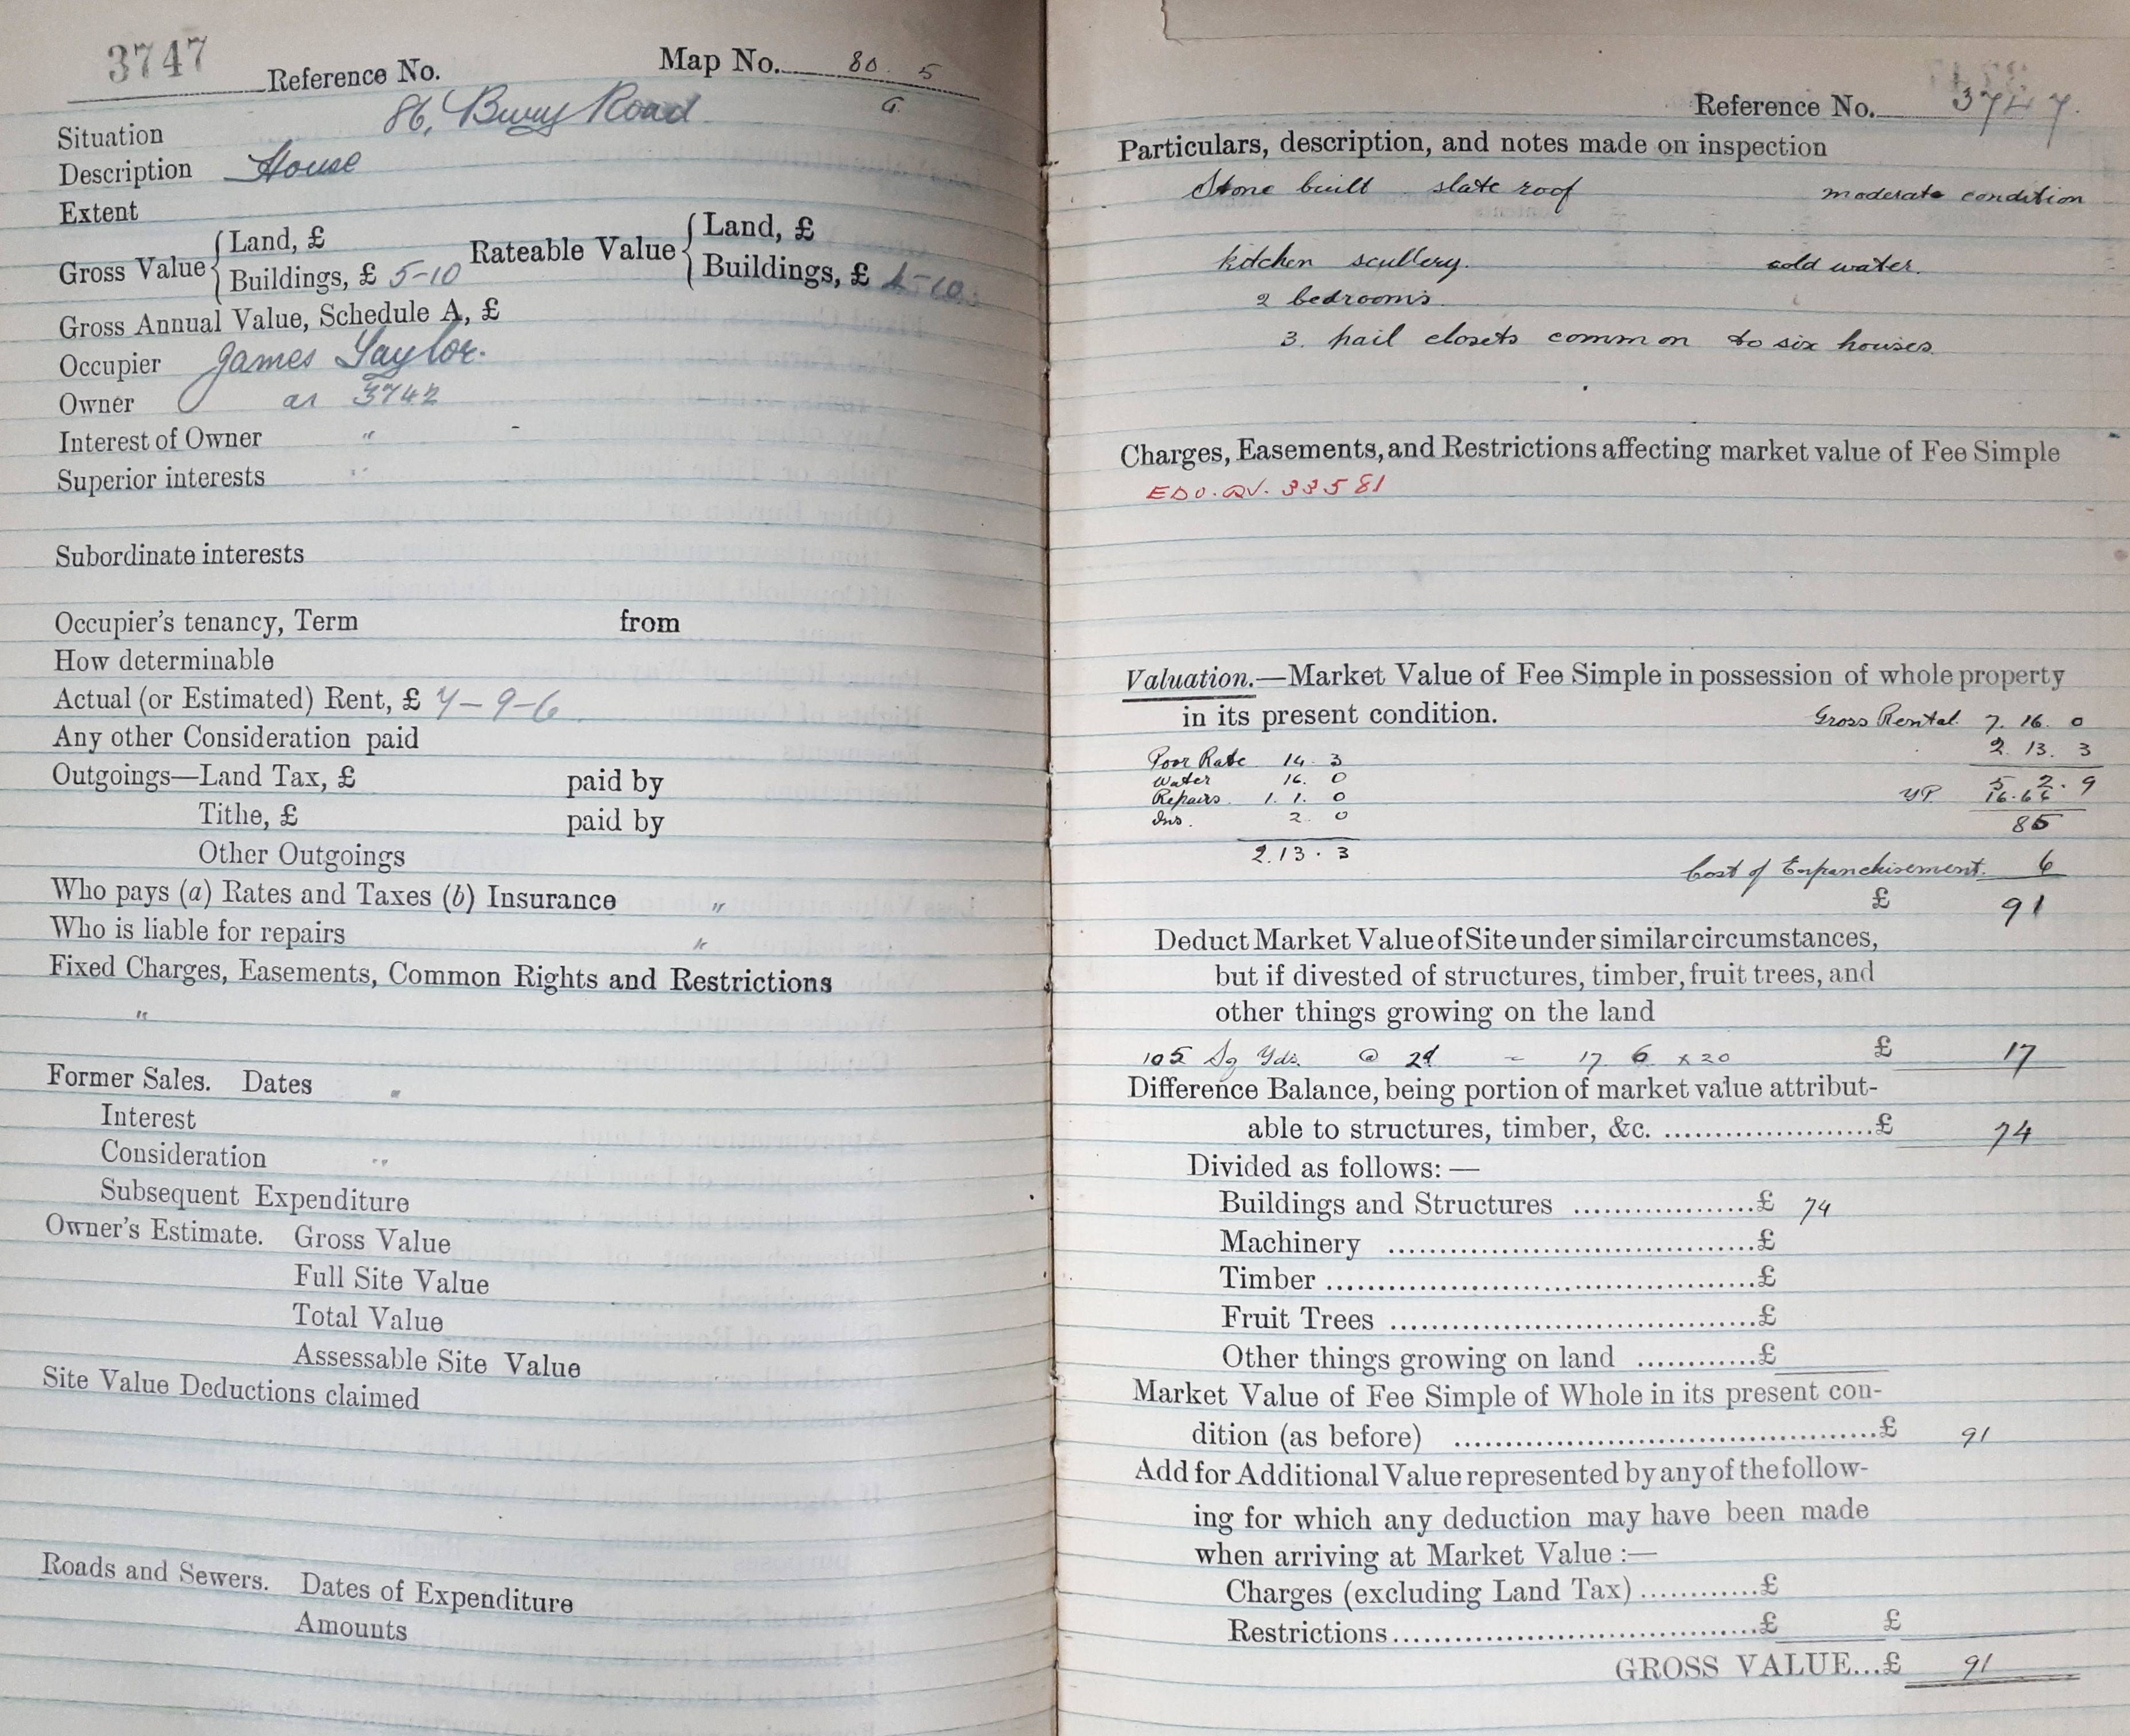 3747 Reference No. Map No. 80. 5
G.
Situation 86, Bury Road
Description House
Extent
Gross Value { Land, £ Rateable Value { Land, £
Buildings, £ 5-10 Buildings, £ 4-10
Gross Annual Value, Schedule A, £
Occupier James Taylor.
Owner as 3742
Interest of Owner "
Superior interests "
Subordinate interests
Occupier's tenancy, Term from
How determinable
Actual (or Estimated) Rent, £ 7-9-6
Any other Consideration paid
Outgoings—Land Tax, £ paid by
Tithe, £ paid by
Other Outgoings
Who pays (a) Rates and Taxes (b) Insurance "
Who is liable for repairs "
Fixed Charges, Easements, Common Rights and Restrictions
"
Former Sales. Dates "
Interest
Consideration "
Subsequent Expenditure
Owner's Estimate. Gross Value
Full Site Value
Total Value
Assessable Site Value
Site Value Deductions claimed
Roads and Sewers. Dates of Expenditure
Amounts
Reference No. 3747.
Particulars, description, and notes made on inspection
Stone built slate roof moderate condition
kitchen scullery. cold water.
2 bedrooms.
3. pail closets common to six houses.
Charges, Easements, and Restrictions affecting market value of Fee Simple
EDO. QV. 33581
Valuation.—Market Value of Fee Simple in possession of whole property
in its present condition. Gross Rental. 7. 16. 0
2. 13. 3
Poor Rate 14. 3
Water 16. 0 5. 2. 9
Repairs. 1. 1. 0 YP. 16.66
Ins. 2. 0 85
2. 13. 3
Cost of Enfranchisement. 6
£ 91
Deduct Market Value of Site under similar circumstances,
but if divested of structures, timber, fruit trees, and
other things growing on the land
105 Sq Yds. @ 2d = 17. 6 x 20 £ 17
Difference Balance, being portion of market value attribut-
able to structures, timber, &c. ......................£ 74
Divided as follows:—
Buildings and Structures ..................£ 74
Machinery ....................................£
Timber .........................................£
Fruit Trees ...................................£
Other things growing on land ............£
Market Value of Fee Simple of Whole in its present con-
dition (as before) ..........................................£ 91
Add for Additional Value represented by any of the follow-
ing for which any deduction may have been made
when arriving at Market Value :—
Charges (excluding Land Tax) ............£
Restrictions ......................................£ £
GROSS VALUE...£ 91